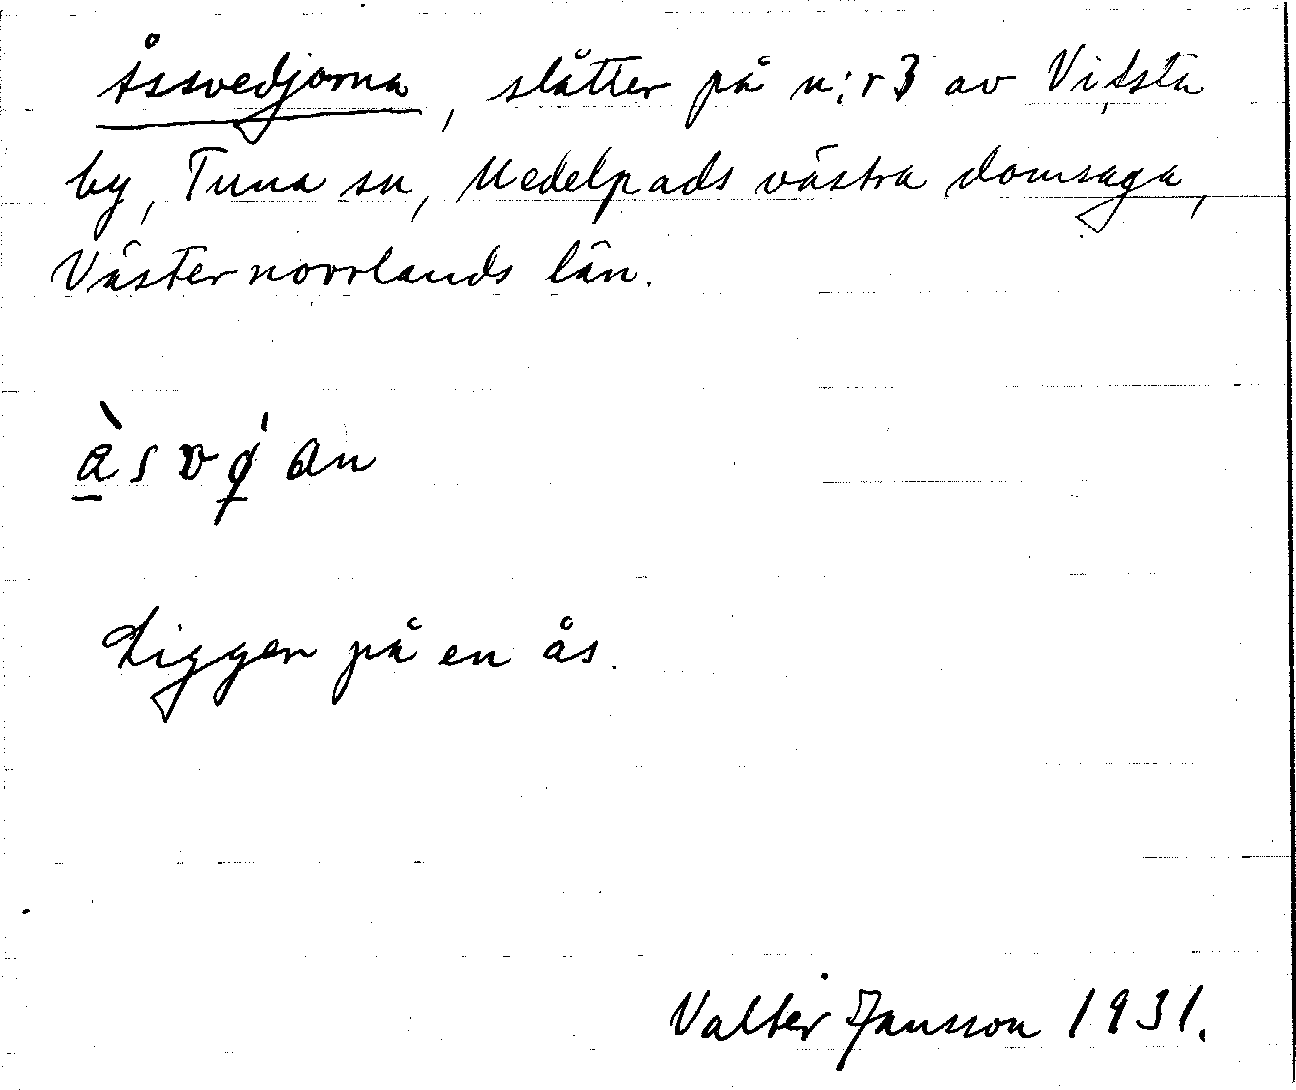 Åssvedjorna, slåtter på n:r 3 av Vidsta
by, Tuna sn, Medelpads västra domsaga,
Västernorrlands län.
Ligger på en ås.
Valter Jansson 1931.